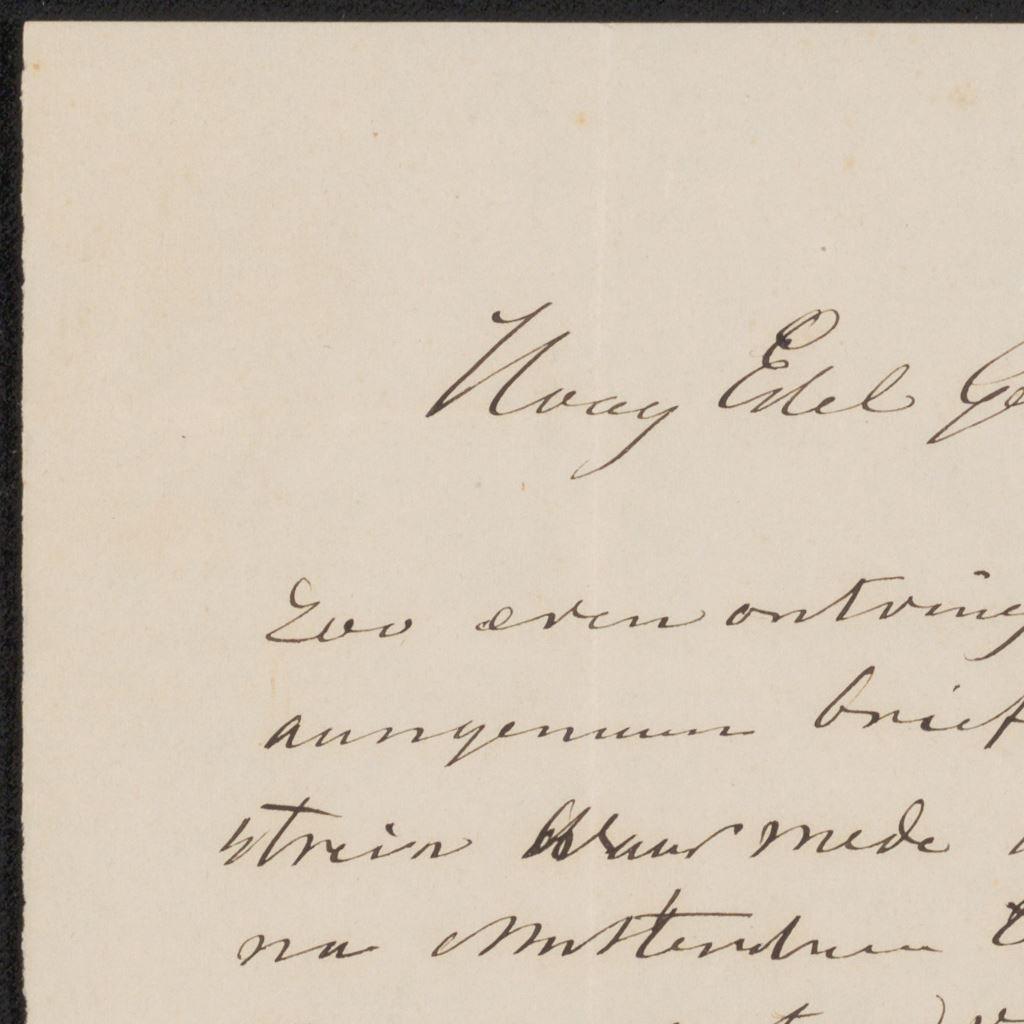 Hoog Edel Ge
Zoo even ontving
aangenaam brief
strein waar mede
na Amsterdam